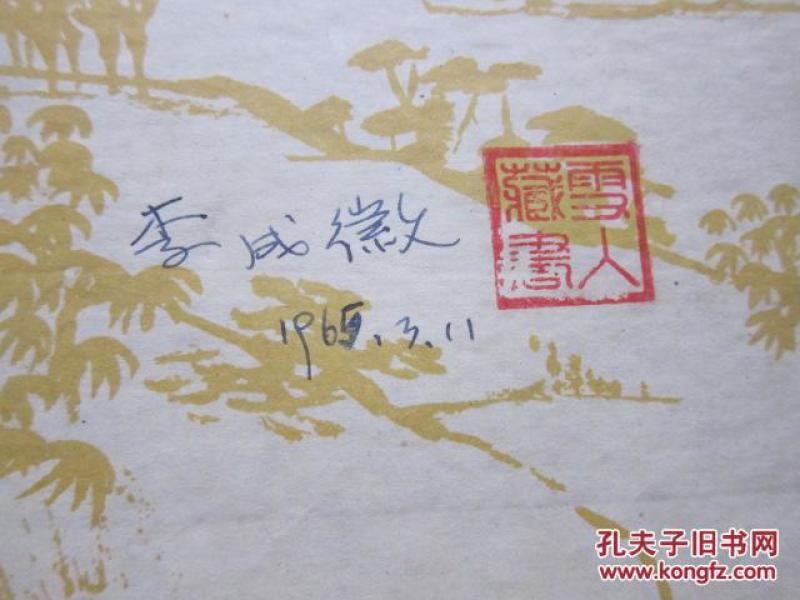 李成徽
1965.3.11
雪人
藏書
孔夫子旧书网
www.kongfz.com